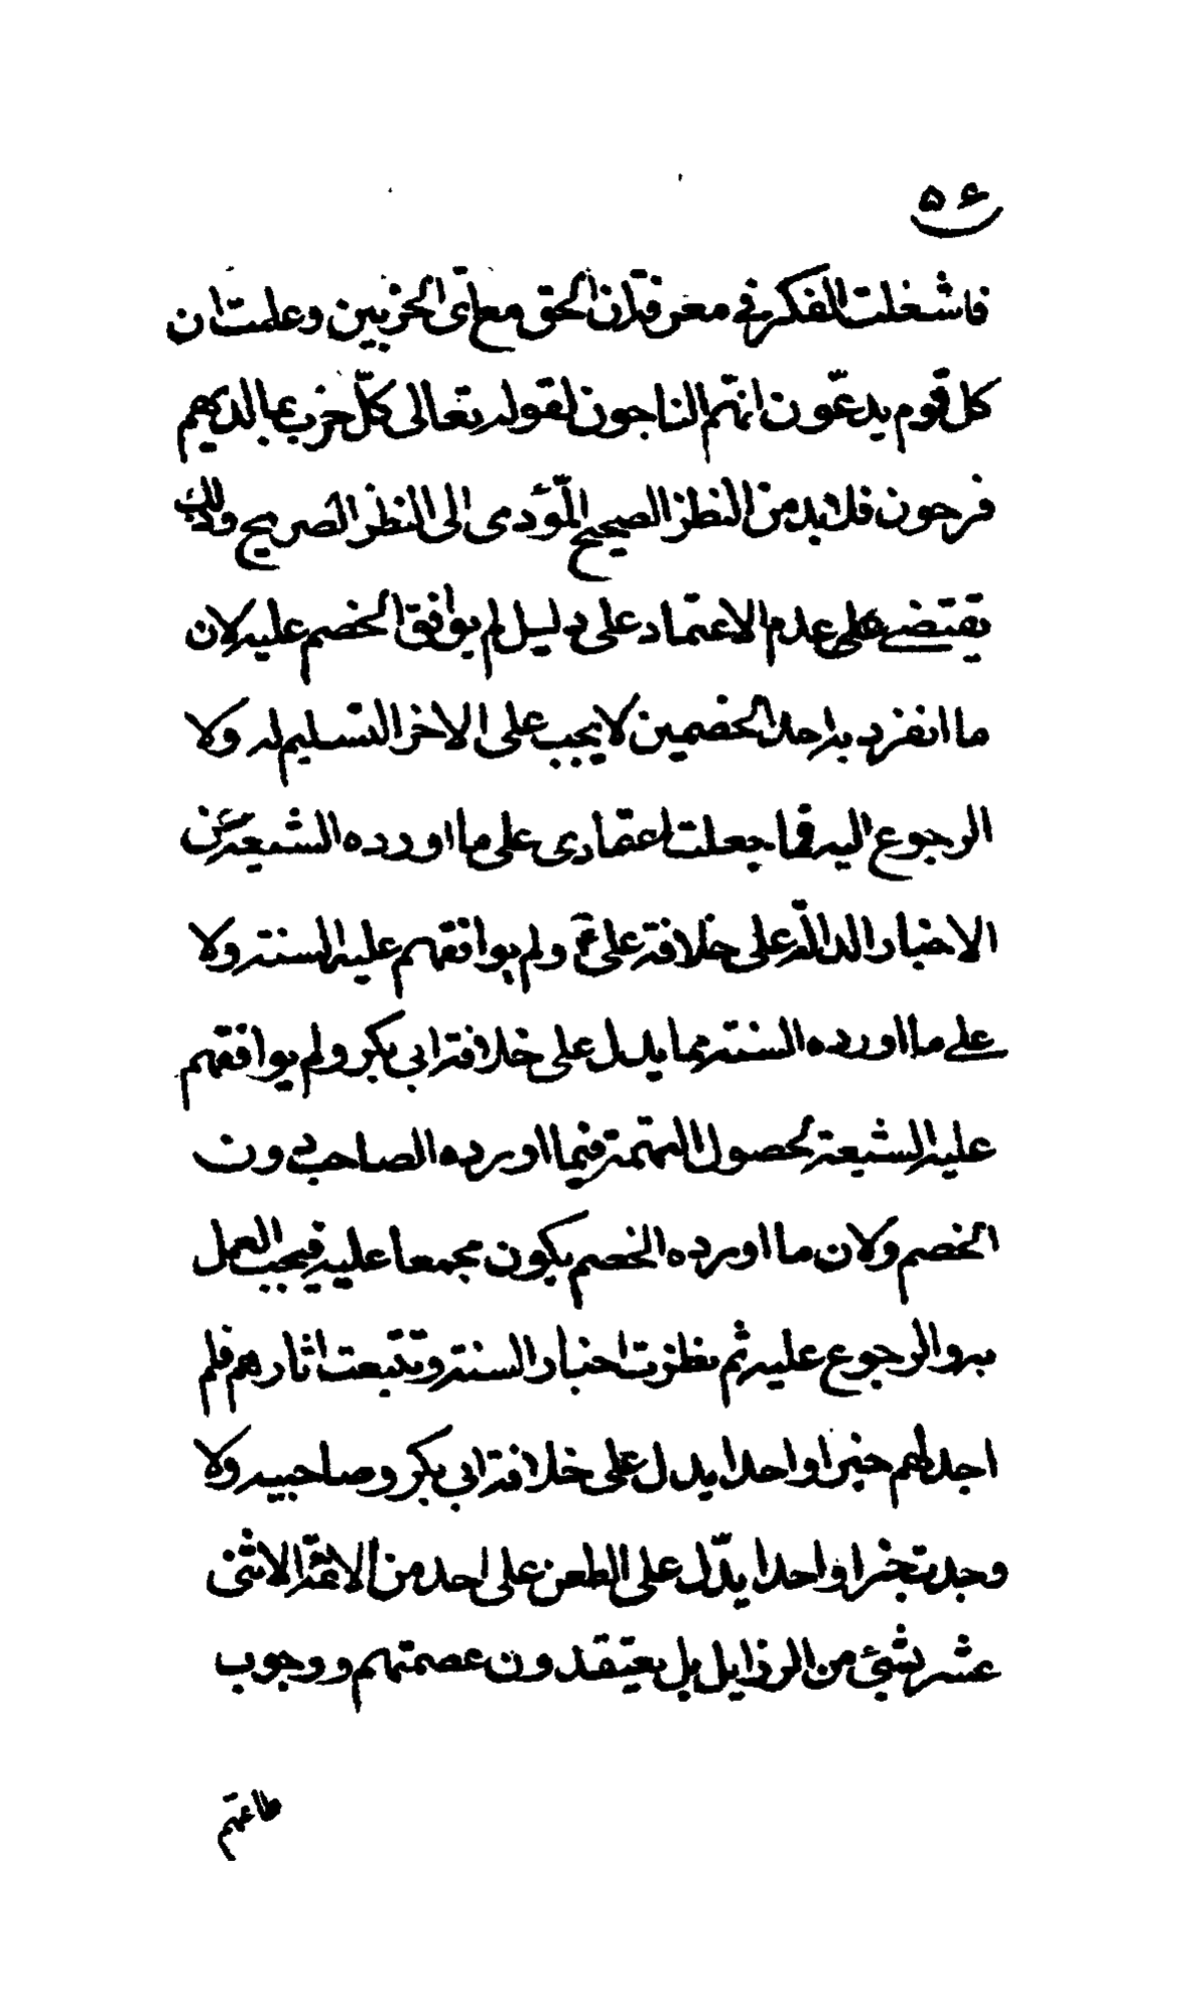 ۵۶
فاشغلت الفكر في معرفة ان الحق مع اى الحزبين وعلمت ان
كل قوم يدعّون انهّم الناجون لقوله تعالى كلّ حزب بما لديهم
فرحون فلابد من النظر الصحيح المّؤدى الى النظر الصريح وذلك
يقتضے على عدم الاعتماد على دليل لم يوافق الخصم عليه لان
ما انفرد به احد الخصمين لا يجب على الاخر التسليم له ولا
الرجوع اليه فما جعلت اعتمادى على ما اورده الشيعة من
الاخبار الدالّة على خلافة على ع ولم يوافقهم عليه السنة ولا
علے ما اورده السنة مما يدل على خلافة ابى بكر ولم يوافقهم
عليه الشيعة لحصول التهمة فيما اورده الصاحب دون
الخصم ولان ما اورده الخصم يكون مجمعا عليه فيجب العمل
به والرجوع عليه ثم نظرت اخبار السنة وتتبعت اثارهم فلم
اجد لهم خبرا واحدا يدل على خلافة ابى بكر وصاحبيه ولا
وجدت خبرا واحدا يدّل على الطعن على احد من الائمّة الاثنى
عشر بشئ من الرذايل بل يعتقدون عصمتهم ووجوب
طاعتهم